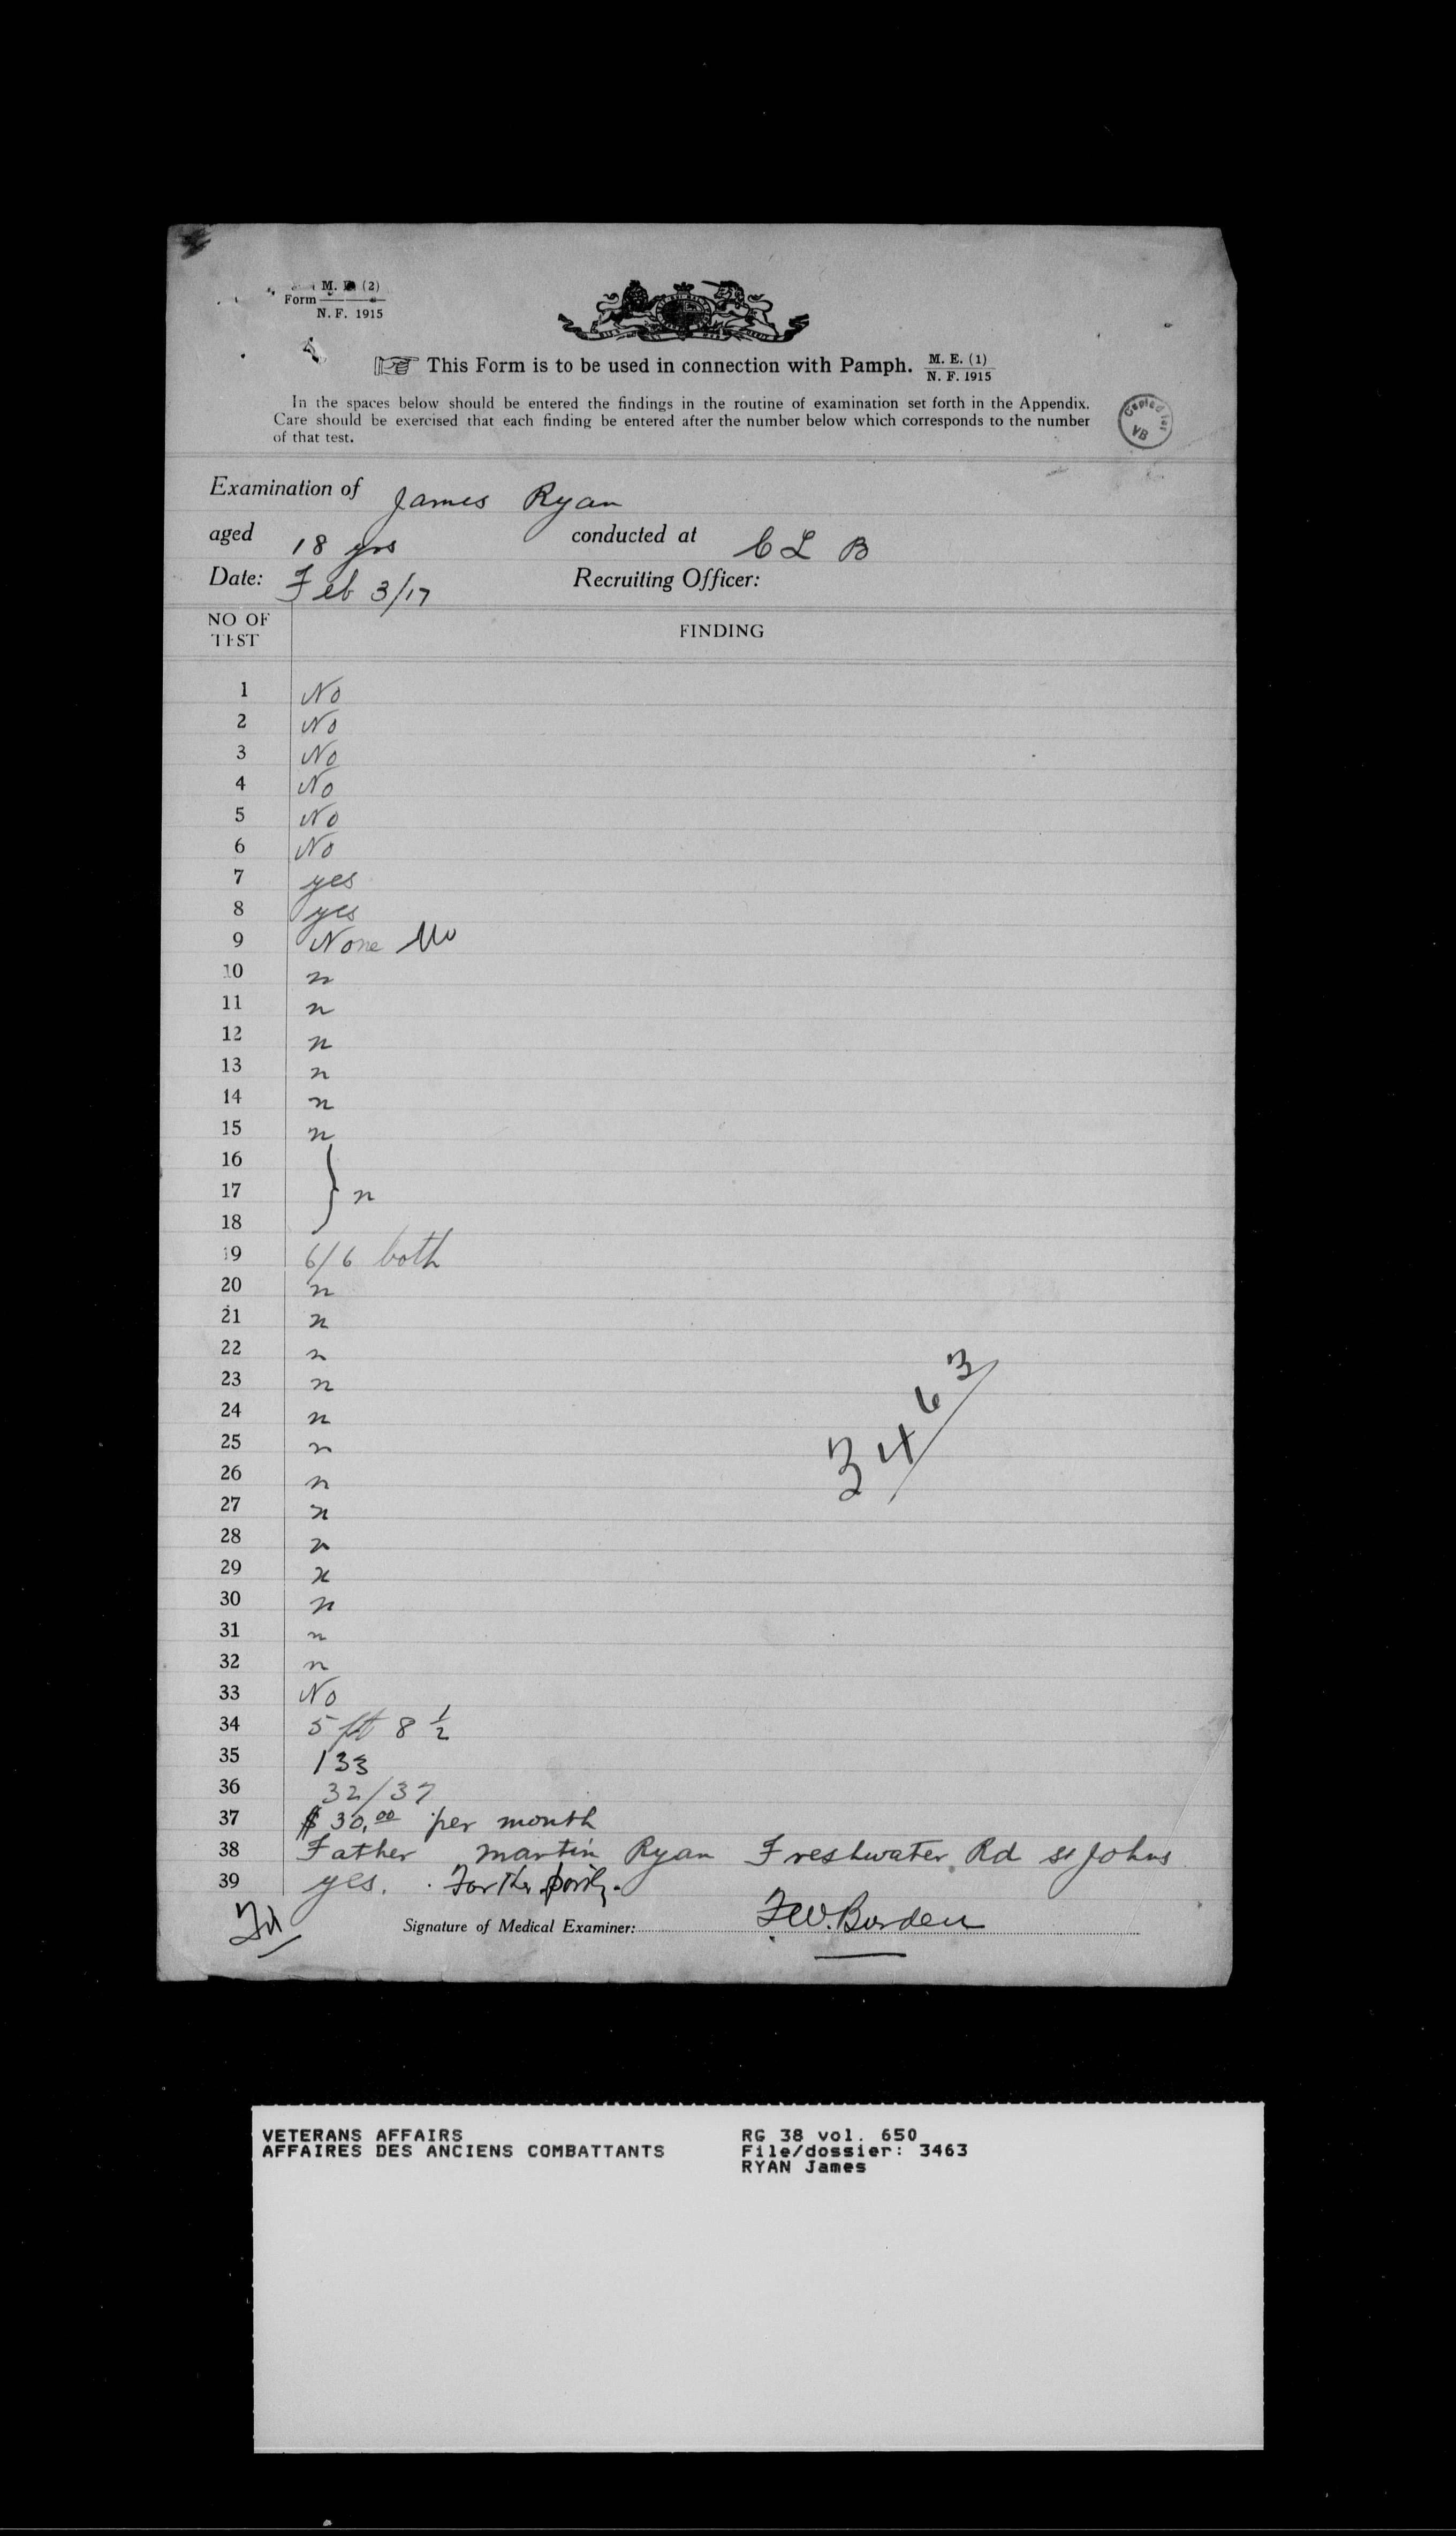 Form M. E. (2)
N. F. 1915
This Form is to be used in connection with Pamph. M. E. (1)
N. F. 1915
In the spaces below should be entered the findings in the routine of examination set forth in the Appendix.
Care should be exercised that each finding be entered after the number below which corresponds to the number
of that test.
Copied for
VB
Examination of James Ryan
aged 18 yrs conducted at C L B
Date: Feb 3/17 Recruiting Officer:
NO OF
TEST
FINDING
1 No
2 No
3 No
4 No
5 No
6 No
7 yes
8 yes
9 None No
10 n
11 n
12 n
13 n
14 n
15 n
16
17 } n
18
19 6/6 both
20 n
21 n
22 n
23 n
24 n
25 n
26 n
27 n
28 n
29 n
30 n
31 n
32 n
33 No
34 5 ft 8 1/2
35 133
36 32/37
37 $30.00 per month
38 Father Martin Ryan Freshwater Rd St Johns
39 yes.
3463
Signature of Medical Examiner: F.W. Burden
VETERANS AFFAIRS
AFFAIRES DES ANCIENS COMBATTANTS
RG 38 vol. 650
File/dossier: 3463
RYAN James